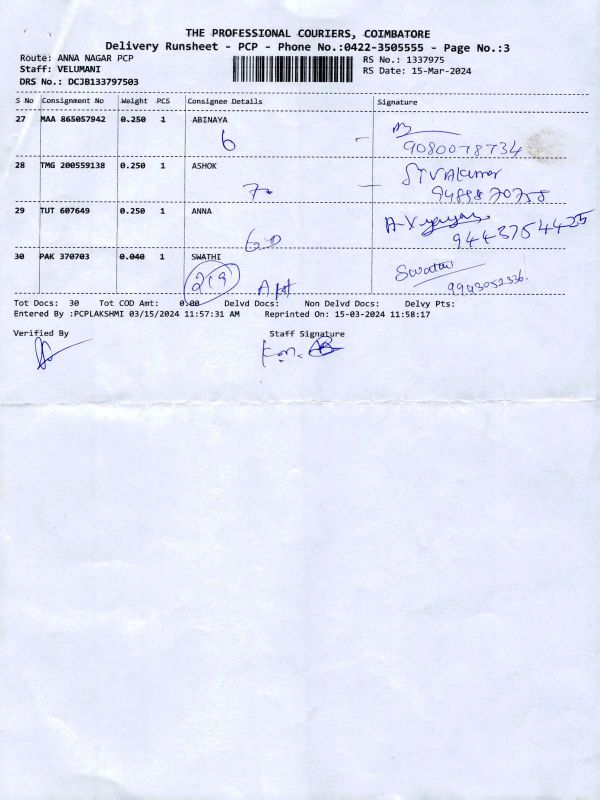 THE PROFESSIONAL COURIERS, COIMBATORE
Delivery Runsheet - PCP - Phone No.:0422-3505555 - Page No.:3
Route: ANNA NAGAR PCP RS No.: 1337975
Staff: VELUMANI RS Date: 15-Mar-2024
DRS No.: DCJB133797503
S No Consignment No Weight PCS Consignee Details Signature
27 MAA 865057942 0.250 1 ABINAYA
6 9080078734
28 TMG 200559138 0.250 1 ASHOK
7 9489870758
29 TUT 607649 0.250 1 ANNA
9443754425
30 PAK 370703 0.040 1 SWATHI
219 Apt Swathi 9943052336
Tot Docs: 30 Tot COD Amt: 0.00 Delvd Docs: Non Delvd Docs: Delvy Pts:
Entered By :PCPLAKSHMI 03/15/2024 11:57:31 AM Reprinted On: 15-03-2024 11:58:17
Verified By Staff Signature